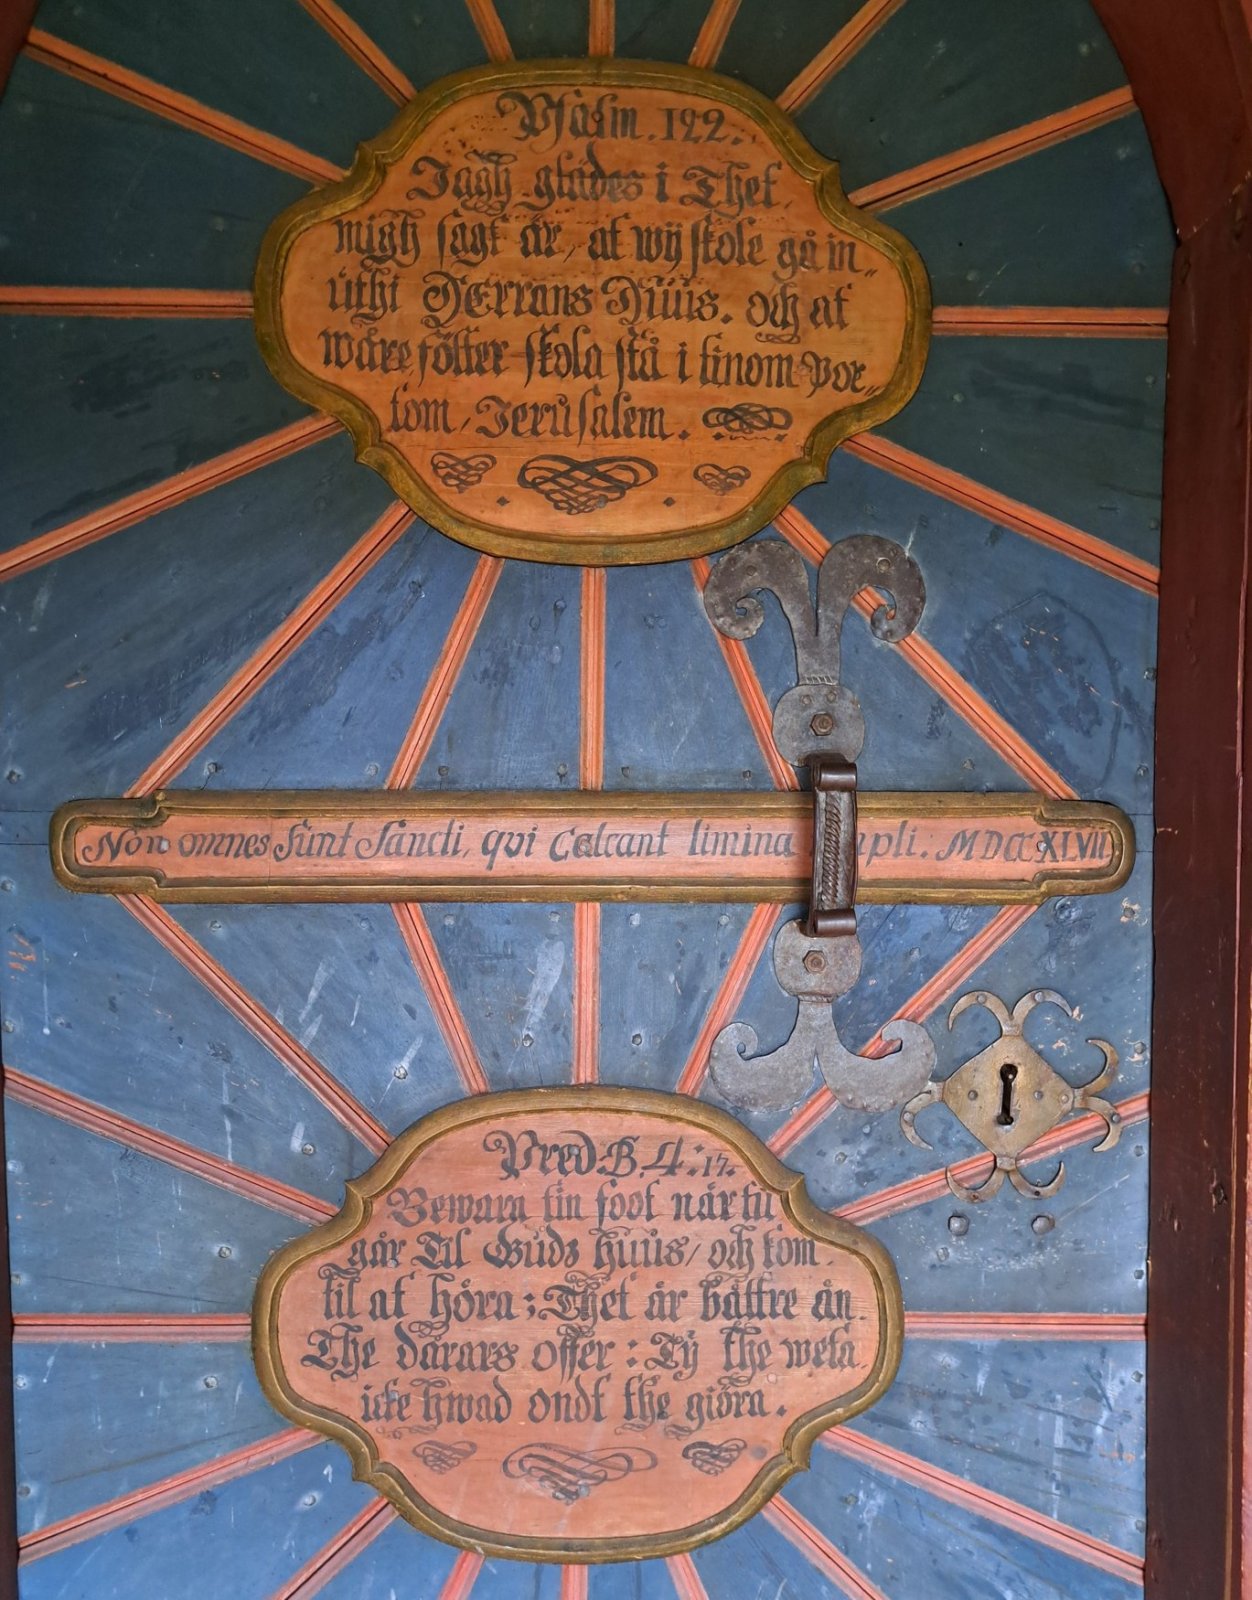 Psalm. 122.
Jagh glädes i Thet
migh sagt är, at wij skole gå in„
uthi HErrans Huus. och at
wåre fötter skola stå i tinom Por„
tom, Jerusalem.
Non omnes Sunt Sancti, qvi Calcant limina MDCCXLVIII
Pred: B. 4. 17.
Bewara tin foot när tu
går Til Gudz huus, och kom.
til at höra; Thet är bättre än.
The dårars offer: Ty the weta.
icke hwad ondt the giöra.